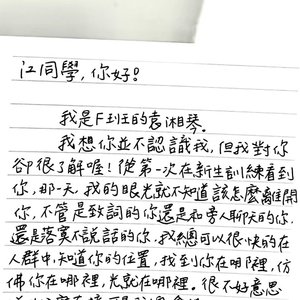 江同學，你好！
我是F班的袁湘琴。
我想你並不認識我，但我對你
卻很了解喔！從第一次在新生訓練看到
你，那一天，我的眼光就不知道該怎麼離開
你，不管是致詞的你還是和旁人聊天的你，
還是落寞不說話的你，我總可以很快的在
人群中，知道你的位置，找到你在哪裡，彷
彿你在哪裡，光就在哪裡。很不好意思